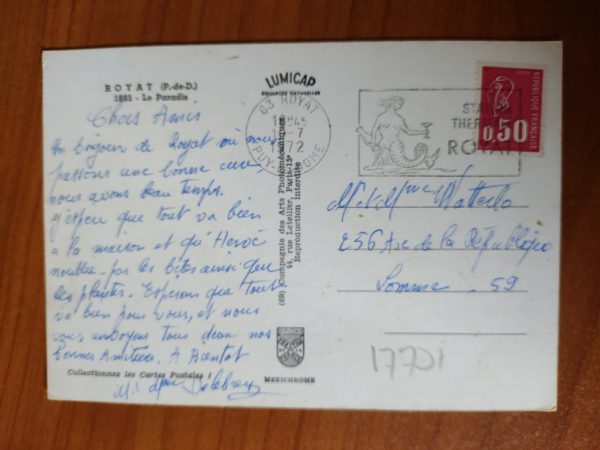 ROYAT (P.-de-D.)
1885 - Le Paradis
Chers Amis
Un bonjour de Royat où nous
passons une bonne cure,
nous avons beau temps.
j'espère que tout va bien
à la maison et qu'Hervé
n'oublie pas les bêtes ainsi que
les plantes. Espérons que tout
va bien pour vous, et nous
vous envoyons tous deux nos
bonnes Amitiées. A Bientôt
Collectionnez les Cartes Postales !
Mr Mme
LUMICAP
COULEURS NATURELLES
(69) Compagnie des Arts Photomécaniques
44, rue Letellier, Paris-15e
Reproduction interdite
MEXICHROME
63 ROYAT
1972
PUY DE DOME
STATION
THERMALE
ROYAT
REPUBLIQUE FRANÇAISE
0,50
Mr & Mme
256 Rue de la République
59
17701